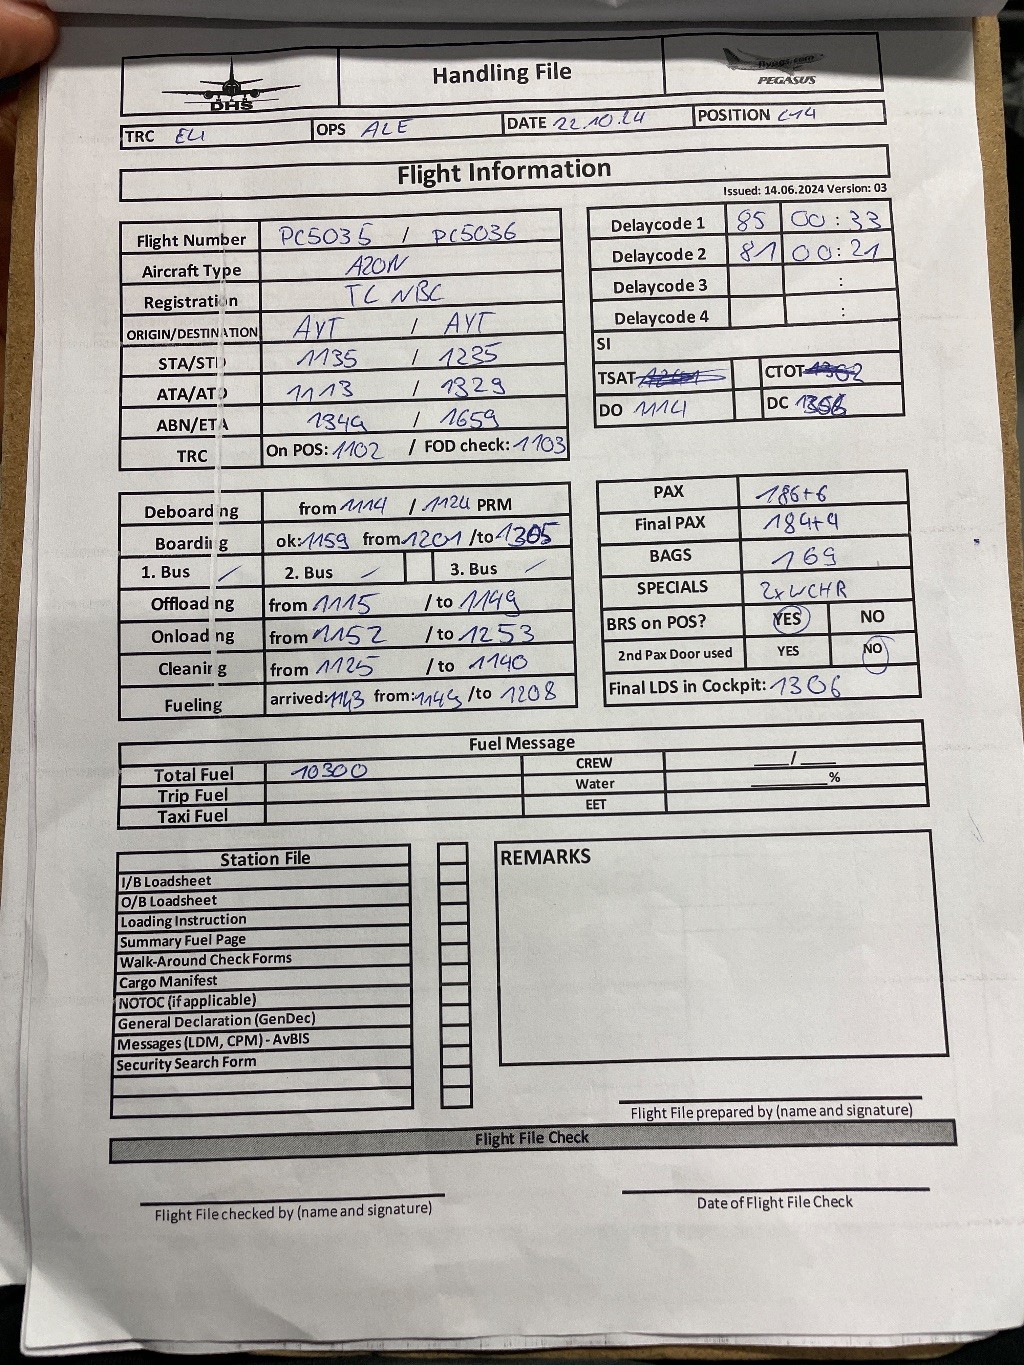 DHS
Handling File
flypgs.com
PEGASUS
TRC ELI OPS ALE DATE 22.10.24 POSITION C14
Flight Information
Issued: 14.06.2024 Version: 03
Flight Number PC5035 / PC5036
Aircraft Type A20N
Registration TC NBC
ORIGIN/DESTINATION AYT / AYT
STA/STD 1135 / 1235
ATA/ATD 1113 / 1329
ABN/ETA 1349 / 1659
TRC On POS: 1102 / FOD check: 1103
Delaycode 1 85 00 : 33
Delaycode 2 81 00 : 21
Delaycode 3 :
Delaycode 4 :
SI
TSAT CTOT
DO 1114 DC
Deboarding from 1114 / 1124 PRM
Boarding ok: 1159 from 1201 /to 1305
1. Bus / 2. Bus / 3. Bus /
Offloading from 1115 /to 1149
Onloading from 1152 /to 1253
Cleaning from 1125 /to 1140
Fueling arrived: 1143 from: 1145 /to 1208
PAX 186+6
Final PAX 184+4
BAGS 169
SPECIALS 2xWCHR
BRS on POS? YES NO
2nd Pax Door used YES NO
Final LDS in Cockpit: 1306
Fuel Message
Total Fuel 10300 CREW ___/___
Trip Fuel Water ______%
Taxi Fuel EET
Station File
I/B Loadsheet
O/B Loadsheet
Loading Instruction
Summary Fuel Page
Walk-Around Check Forms
Cargo Manifest
NOTOC (if applicable)
General Declaration (GenDec)
Messages (LDM, CPM) - AvBIS
Security Search Form
REMARKS
Flight File prepared by (name and signature)
Flight File Check
Flight File checked by (name and signature)
Date of Flight File Check